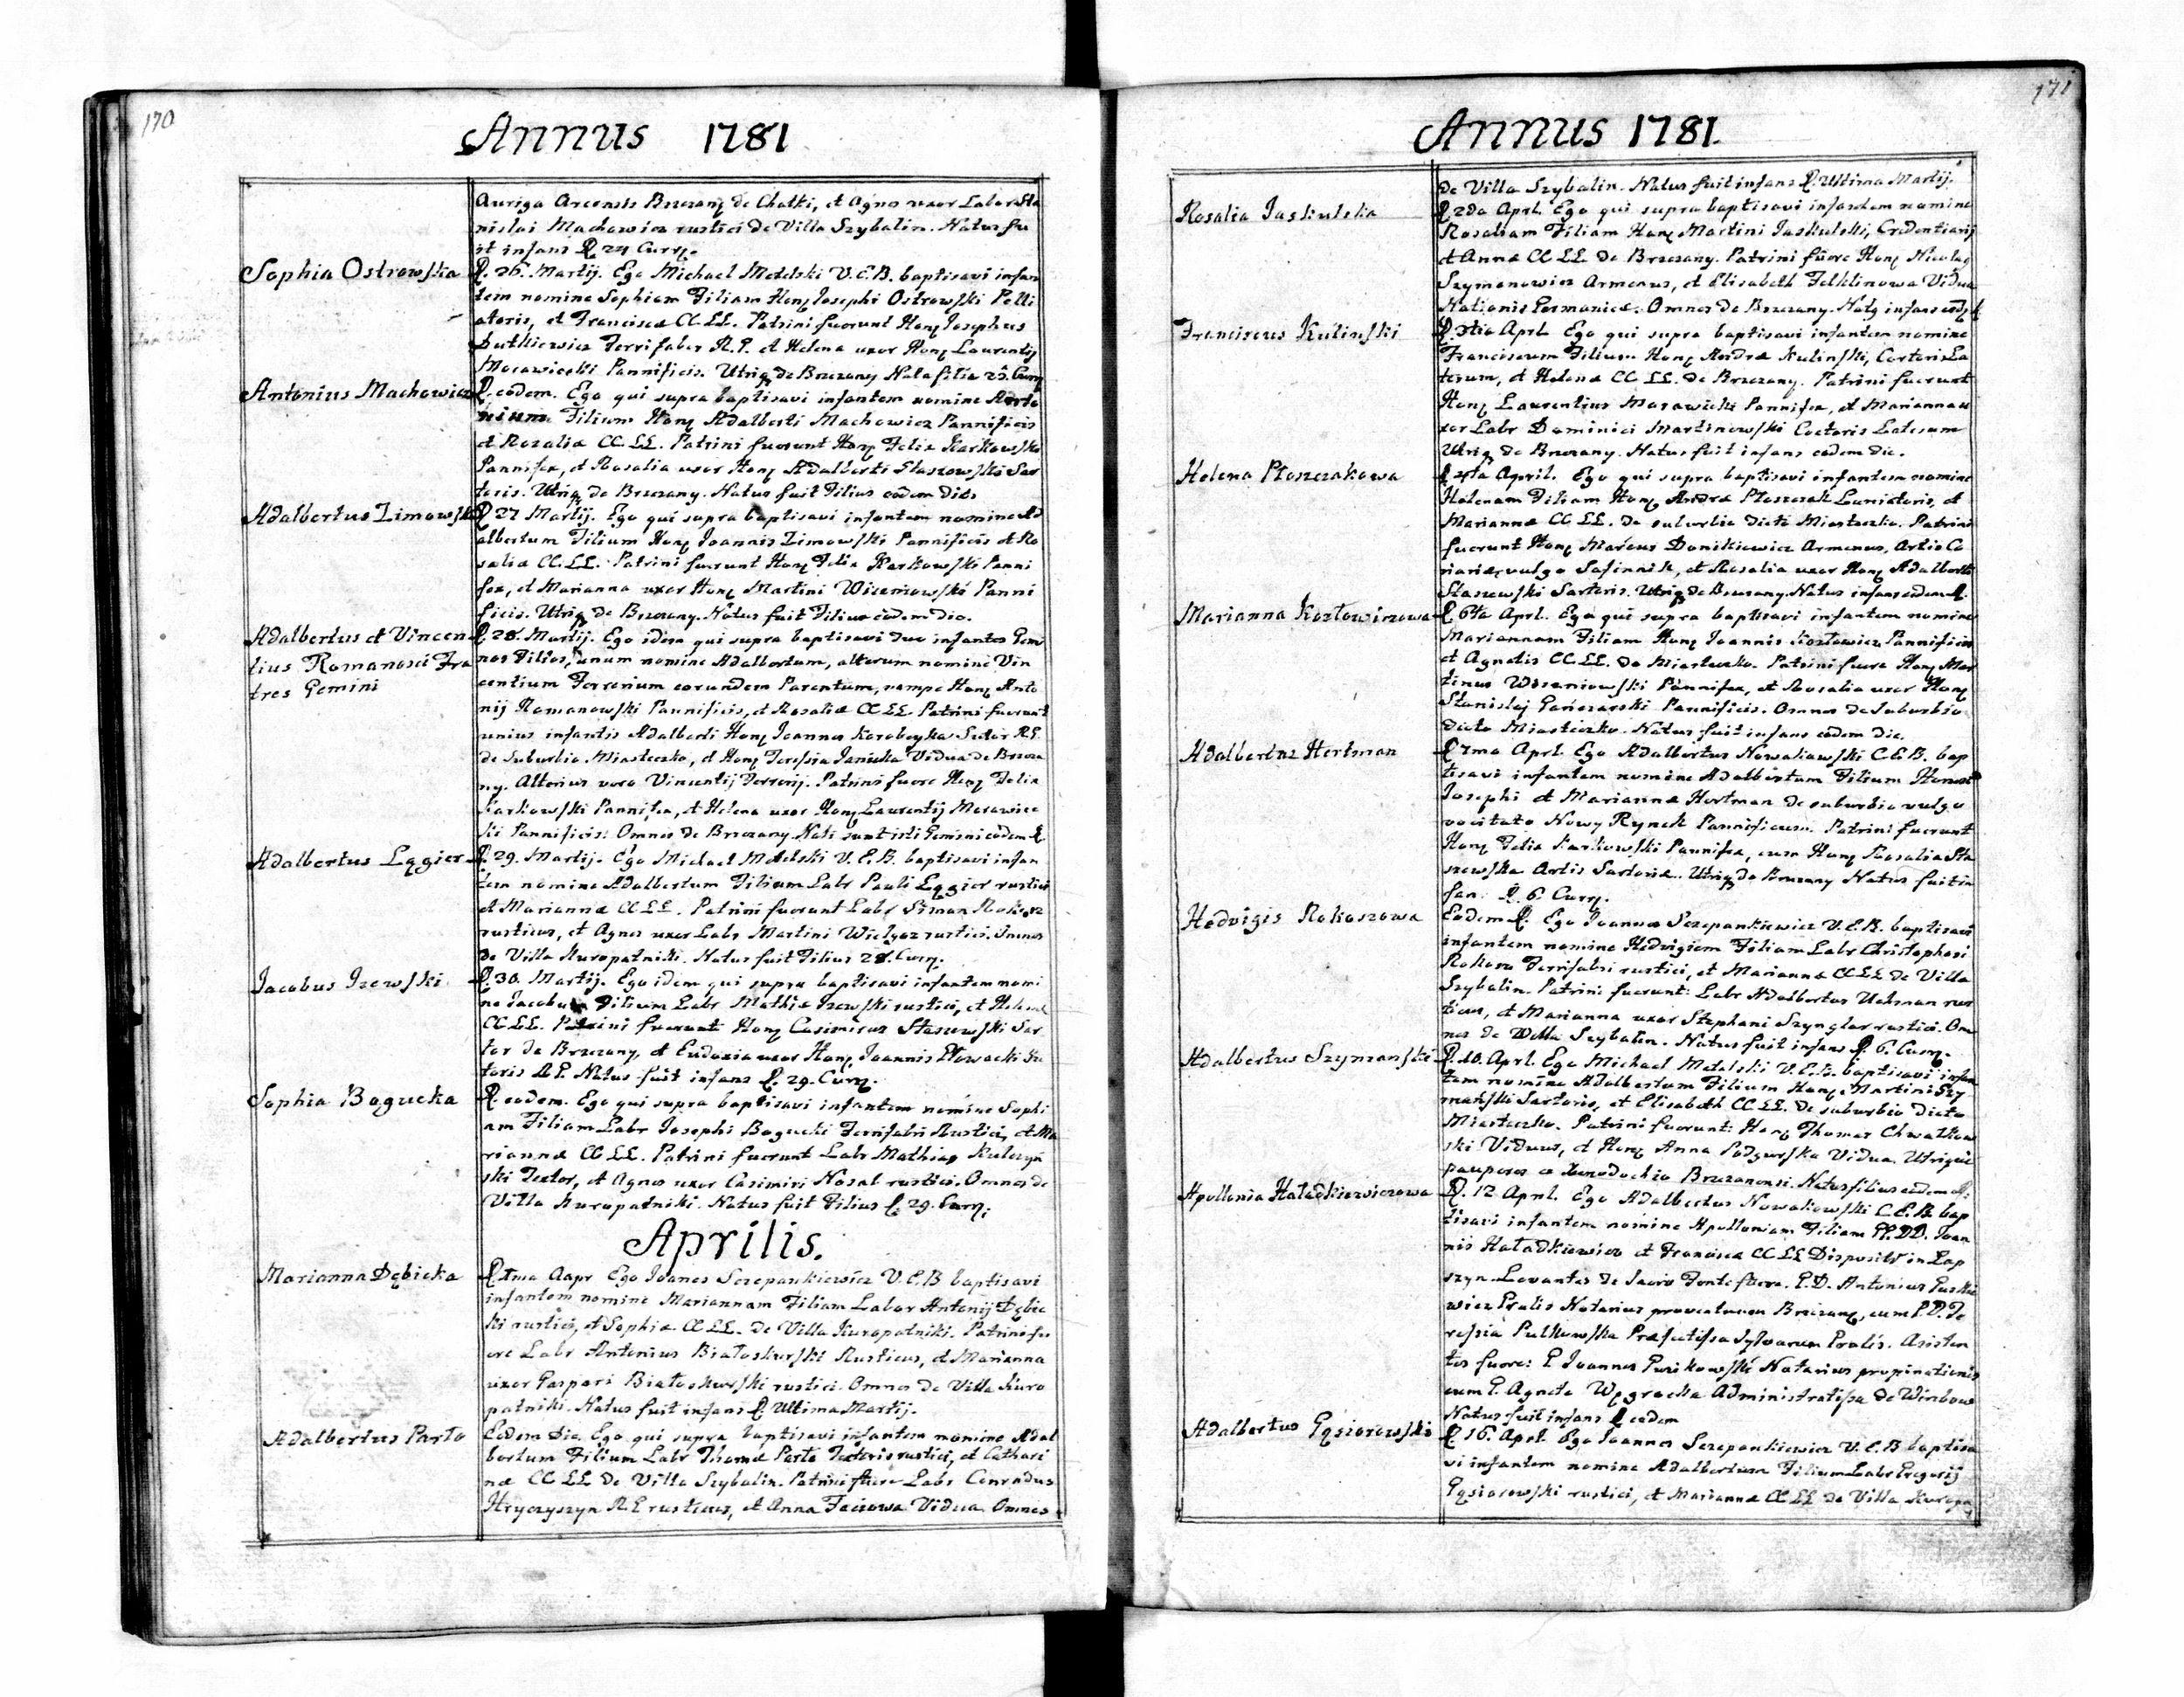 170
Annus 1781
Auriga Arcensis Brzezan de Chatki, et Agnes uxor Labor Sta
nislai Machowicz rustici de Villa Szybalin. Natus fu
it infans D. 24 Curr.
Sophia Ostrowska
D. 26. Martij. Ego Michael Metelski V.E.B. baptisavi infan
tem nomine Sophiam Filiam Hon Josephi Ostrowski Pelli
atoris, et Francisca CC. LL. Patrini fuerunt Hon Josephus
Dutkiewicz Ferrifaber R. P. et Helena uxor Hon Laurentij
Morawiecki Pannificis. Utriq de Brzezany Nata filia 25. Curr
Antonius Machowicz
D. eodem. Ego qui supra baptisavi infantem nomine Anto
nium Filium Hon Adalberti Machowicz Pannificis
et Rozalia CC. LL. Patrini fuerunt Hon Felix Karkowski
Pannifex, et Rosalia uxor Hon Adalberti Staszowski Sar
toris. Utriq de Brzezany. Natus fuit Filius eodem Die.
Adalbertus Zimowski
D 27 Martij. Ego qui supra baptisavi infantem nomine Ad
albertum Filium Hon Joannis Zimowski Pannificis et Ro
salia CC. LL. Patrini fuerunt Hon Felix Karkowski Panni
fex, et Marianna uxor Hon Martini Wiszniowski Panni
ficis. Utriq de Brzezany. Natus fuit Filius eodem die.
Adalbertus et Vincen
tius Romanosci Fra
tres Gemini
D. 28. Martij. Ego idem qui supra baptisavi duo infantes Gem
nos Filios, unum nomine Adalbertum, alterum nomine Vin
centium Ferrerium eorundem Parentum, nempe Hon Anto
nij Romanowski Pannificis, et Rosalia CC LL Patrini fuerunt
unius infantis Adalberti Hon Joannes Korobeyka Sutor R.P.
de Suburbio Miasteczko, et Hon Teressia Janicka Vidua de Brzeza
ny. Alterius vero Vincentij Ferrerij. Patrini fuere Hon Felix
Karkowski Pannifex, et Helena uxor Hon Laurentij Morawiec
ki Pannificis: Omnes de Brzezany. Nati sunt isti Gemini eodem D.
Adalbertus Lęgier
D. 29. Martij. Ego Michael Metelski V. E. B. baptisavi infan
tem nomine Adalbertum Filium Labr Pauli Lęgier rustici
et Marianna CC LL. Patrini fuerunt Labr Simon Rokosz
rusticus, et Agnes uxor Labr Martini Wielgoz rustici. Omnes
de Villa Kuropatniki. Natus fuit Filius 28. Curr.
Jacobus Irewski
D. 30. Martij. Ego idem qui supra baptisavi infantem nomi
ne Jacobum Filium Labr Mathia Irewski rustici, et Helena
CC LL. Patrini fuerunt Hon Casimirus Staszewski Sar
tor de Brzezany, et Eudoxia uxor Hon Joannis Nowacki Su
toris R P. Natus fuit infans D. 29. Curr.
Sophia Bogucka
D. eodem. Ego qui supra baptisavi infantem nomine Sophi
am Filiam Labr Josephi Bogucki Ferrifabri Rustici, et Ma
rianna CC LL. Patrini fuerunt Labr Mathias Kulczyń
ski Textor, et Agnes uxor Casimiri Nosal rustici. Omnes de
Villa Kuropatniki. Natus fuit Filius D. 29. Curr.
Aprilis.
Marianna Dębicka
D 1ma Aapr Ego Joanes Szczepankiewicz V. E. B baptisavi
infantem nomine Mariannam Filiam Labor Antonij Dębic
ki rustici, et Sophia CC LL. de Villa Kuropatniki. Patrini fu
ere Labr Antonius Białoskurski Rusticus, et Marianna
uxor Gaspari Białoskurski rustici. Omnes de Villa Kuro
patniki. Natus fuit infans D. Ultima Martij.
Adalbertus Parto
Eodem Die. Ego qui supra baptisavi infantem nomine Adal
bertum Filium Labr Thoma Parto Textoris rustici, et Cathari
na CC LL de Villa Szybalin. Patrini fuere Labr Conradus
Hryczyszyn R. P rusticus, et Anna Vidua. Omnes
171
Annus 1781.
de Villa Szybalin. Natus fuit infans D. Ultima Martij.
Rosalia Jaskulska
D. 2da Aprl. Ego qui supra baptisavi infantem nomine
Rosaliam Filiam Hon Martini Jaskulski, Credentiarij
et Anna CC LL de Brzezany. Patrini fuere Hon Nicolaus
Szymonowicz Armenus, et Elisabeth Felklinowa Vidua
Nationis Germanica. Omnes de Brzezany. Nats infans eod D
Franciscus Kulinski
D. 3tia Aprl. Ego qui supra baptisavi infantem nomine
Franciscum Filium Hon Andrea Kulinski, Coctoris La
terum, et Helena CC LL. de Brzezany. Patrini fuerunt
Hon Laurentius Morawicki Pannifex, et Marianna u
xor Labr Dominici Martinowski Coctoris Laterum
Utriq de Brzezany. Natus fuit infans eodem die.
Helena Płoszczakowa
D 4ta April. Ego qui supra baptisavi infantem nomine
Helenam Filiam Hon Andrea Płoszczak Lanioris, et
Marianna CC LL. de suburbio dicti Miasteczko. Patrini
fuerunt Hon Marcus Donikiewicz Armenus, Artis Co
riaria, vulgo Safinnik, et Rosalia uxor Hon Adalberti
Staszewski Sartoris. Utriq de Brzezany. Natus infans eodem D.
Marianna Kozłowiczowa
D 6ta Aprl. Ego qui supra baptisavi infantem nomine
Mariannam Filiam Hon Joannis Kozłowicz Pannificis
et Agnetis CC LL. de Miasteczko. Patrini fuere Hon Mar
tinus Wiszniowski Pannifex, et Rosalia uxor Hon
Stanislaj Gańczarski Pannificis. Omnes de Suburbio
dicto Miasteczko. Natus fuit infans eodem die.
Adalbertus Hertman
D 7ma Aprl. Ego Adalbertus Nowakowski C. E. B. bap
tisavi infantem nomine Adalbertum Filium Honest
Josephi et Marianna Hertman de suburbio vulgo
vocitato Nowy Rynek Pannificum. Patrini fuerunt
Hon Felix Karkowski Pannifex, cum Hon Rosalia Sta
szewska Artis Sartoria. Utriq de Brzezany Natus fuit in
fan. D. 6. Curr.
Hedvigis Rokoszowa
Eodem D. Ego Joannes Szczepankiewicz V. E. B. baptisavi
infantem nomine Hedvigiem Filiam Labr Christophori
Rokosz Ferrifabri rustici, et Marianna CC LL de Villa
Szybalin. Patrini fuerunt: Labr Adalbertus Uchman rus
ticus, et Marianna uxor Stephani Szyngler rustici. Om
nes de Villa Szybalin. Natus fuit infans D. 6. Curr.
Adalbertus Szymanski
D. 10. Aprl. Ego Michael Metelski V. E. B. baptisavi infan
tem nomine Adalbertum Filium Hon Martini Szy
mański Sartoris, et Elisabeth CC LL. de suburbio dicto
Miasteczko. Patrini fuerunt: Hon Thomas Chwałkow
ski Viduus, et Hon Anna Podgurska Vidua. Utrique
pauperes ex Xenodochio Brzezanensi. Natus filius eodem D.
Apollonia Haładkiewiczowa
D. 12 Aprl. Ego Adalbertus Nowakowski C. E. B. bap
tisavi infantem nomine Apolloniam Filiam PP. DD. Joan
nis Haładkiewicz et Francisca CC LL Disposit in Lap
szyn. Levantes de Sacro Fonte fuere. P. D. Antonius Puskie
wicz Pralis Notarius proventuum Brzezan, cum P. D. Te
ressia Pulkowska Prafectissa Sylvarum Pralis. Asisten
tes fuere: P Joannes Purikowski Notarius propinationis
cum P. Agnete Węgrocka Administratissa de Wirzbow
Natus fuit infans D eodem
Adalbertus Gąsiorowski
D 16. Aprl. Ego Joannes Szczepankiewicz V. E. B baptisa
vi infantem nomine Adalbertum Filium Labr Gregorij
Gąsiorowski rustici, et Marianna CC LL de Villa Kuropa